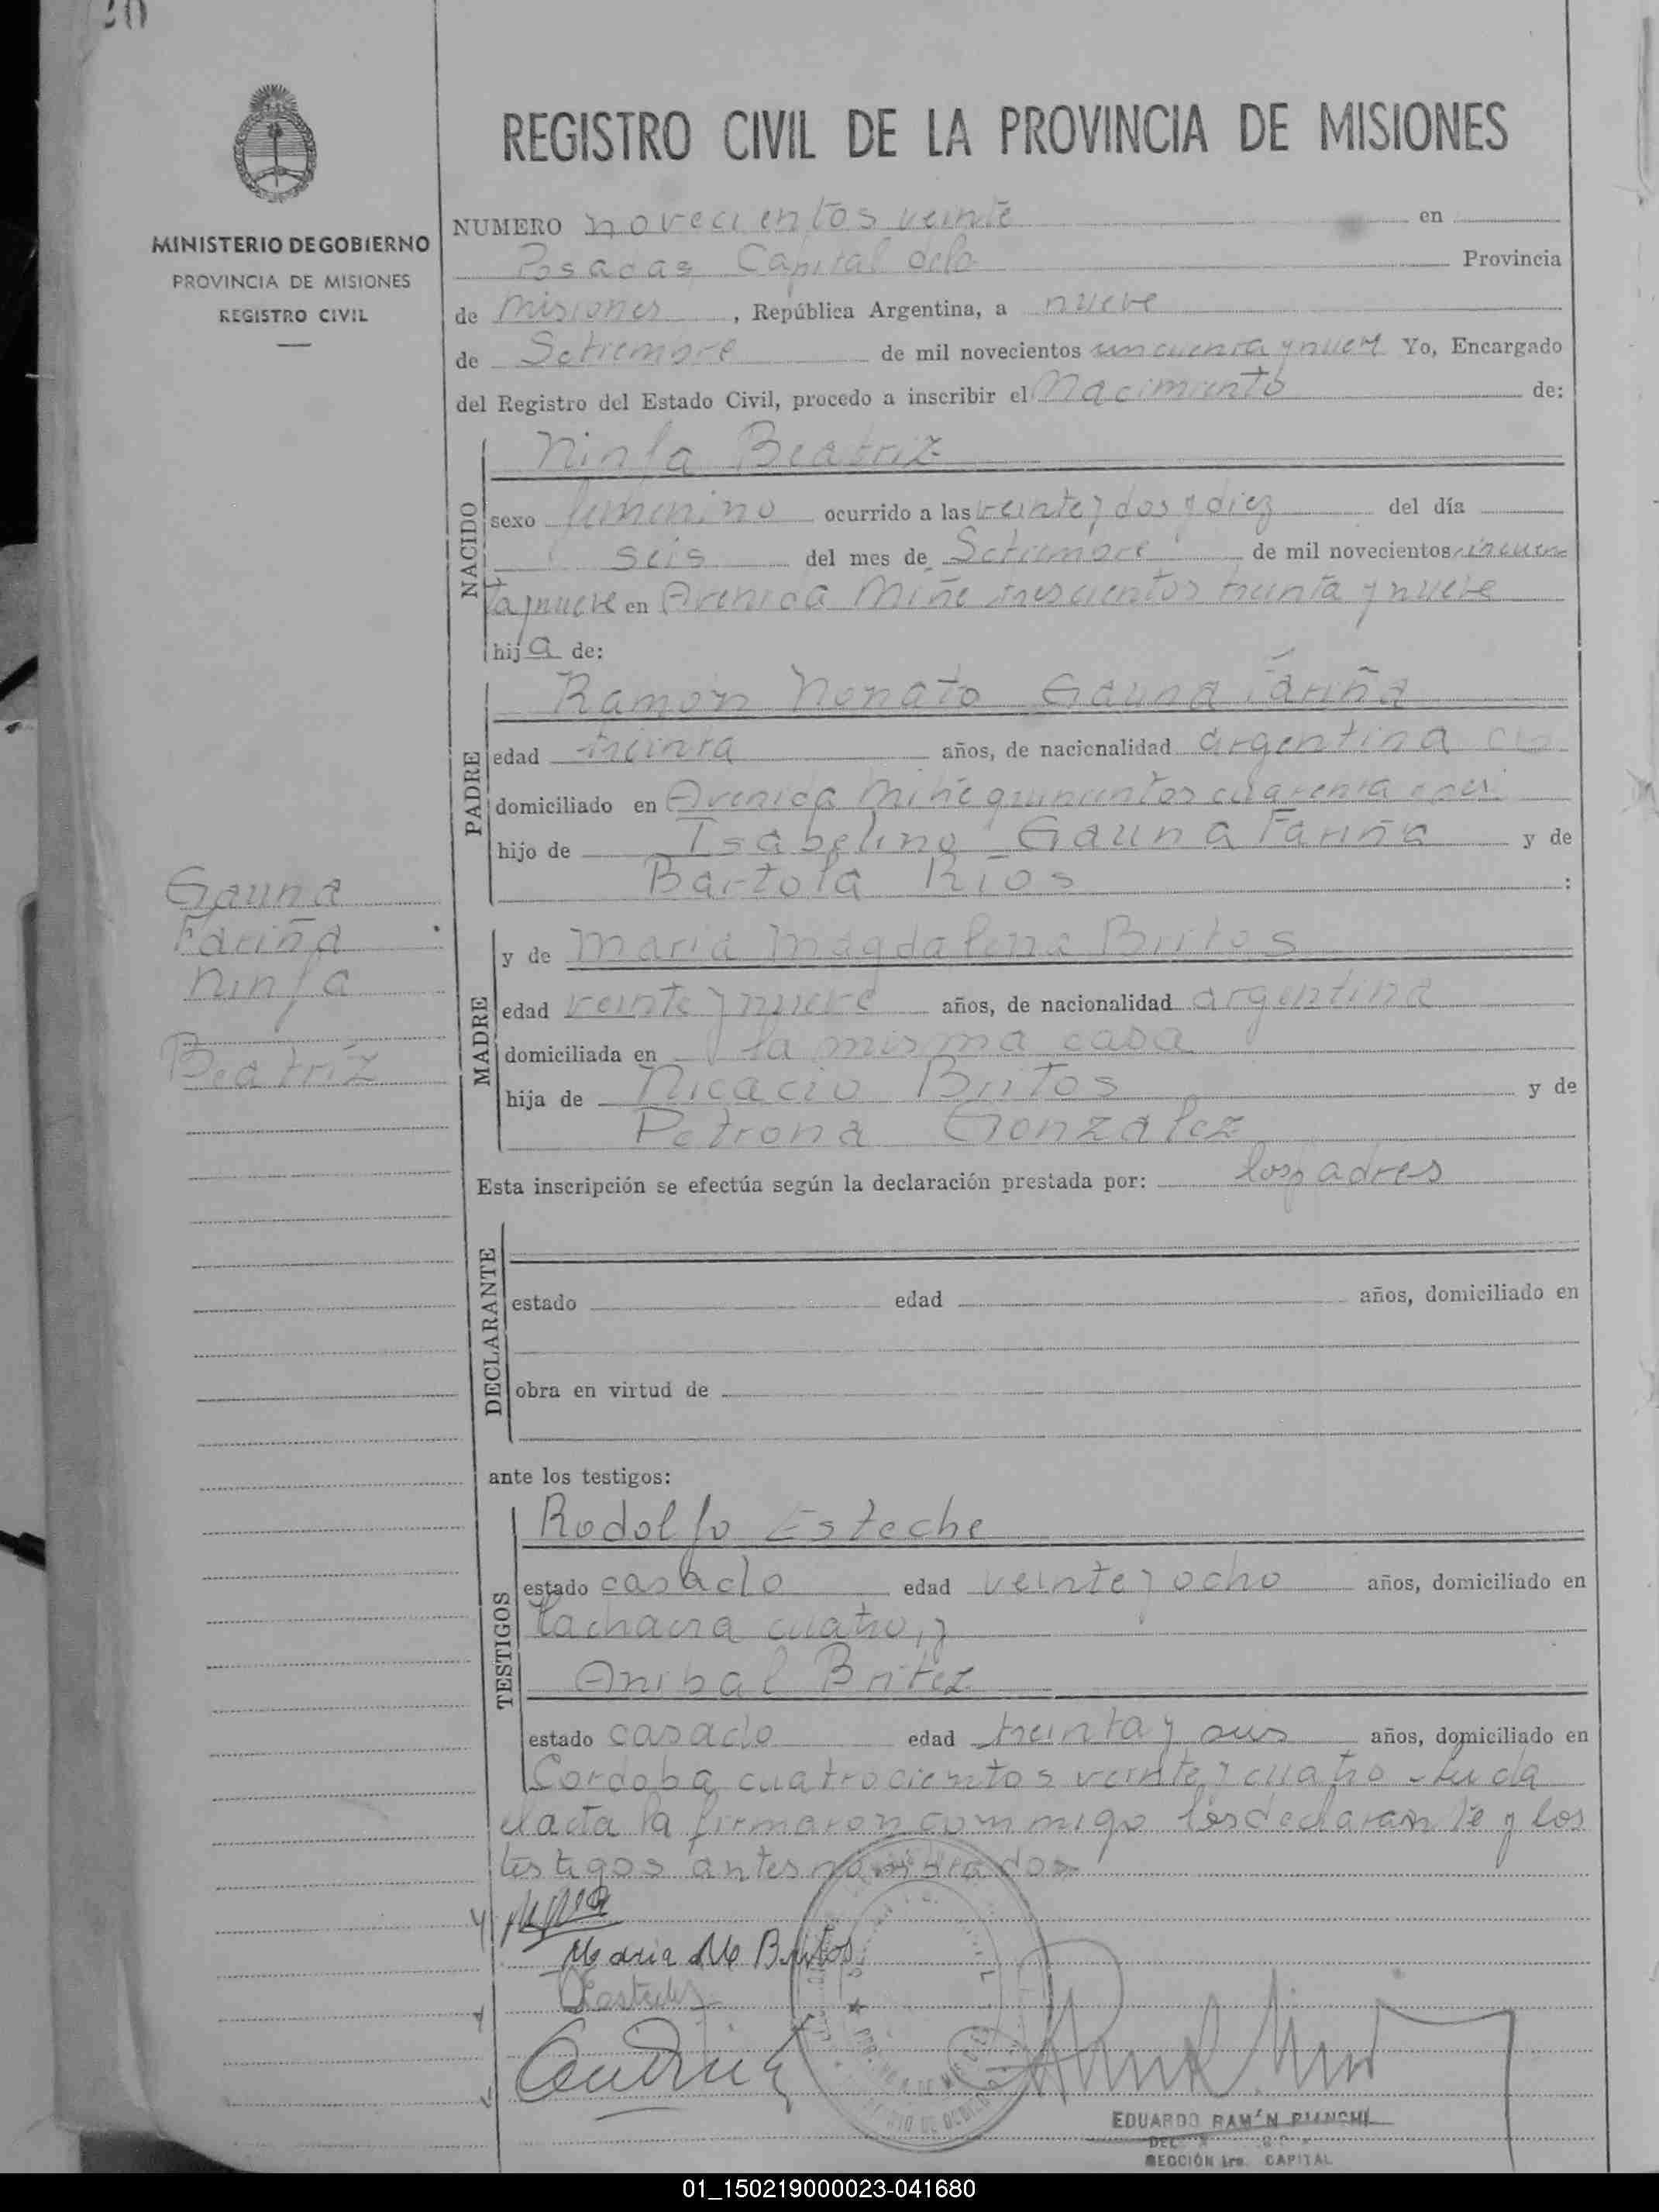 20
REGISTRO CIVIL DE LA PROVINCIA DE MISIONES
MINISTERIO DE GOBIERNO
PROVINCIA DE MISIONES
REGISTRO CIVIL
NUMERO novecientos veinte en
Posadas Capital dela Provincia
de Misiones, República Argentina, a nueve
de Setiembre de mil novecientos cincuenta y nueve Yo, Encargado
del Registro del Estado Civil, procedo a inscribir el Nacimiento de:
NACIDO
Ninfa Beatriz
sexo femenino ocurrido a las veinte y dos y diez del día
seis del mes de Setiembre de mil novecientos cincuen
ta y nueve en Avenida Miñe trescientos treinta y nueve
hija de:
PADRE
Ramón Nonato Gauna Fariña
edad treinta años, de nacionalidad argentina
domiciliado en Avenida Miñe quinientos cuarenta
hijo de Isabelino Gauna Fariña y de
Bartola Ríos :
Gauna
Fariña
Ninfa
Beatriz
MADRE
y de Maria Magdalena Britos
edad veinte y nueve años, de nacionalidad argentina
domiciliada en la misma casa
hija de Nicacio Britos y de
Petrona Gonzalez
Esta inscripción se efectúa según la declaración prestada por: los padres
DECLARANTE
estado edad años, domiciliado en
obra en virtud de
ante los testigos:
TESTIGOS
Rodolfo Esteche
estado casado edad veinte y ocho años, domiciliado en
la chacra cuatro, y
Anibal Britez
estado casado edad treinta y seis años, domiciliado en
Cordoba cuatrocientos veinte y cuatro Leida
el acta la firmaron conmigo los declarante y los
testigos antes nombrados
Maria M Britos
EDUARDO RAMÓN BIANCHI
SECCIÓN 1ra. CAPITAL
01_150219000023-041680